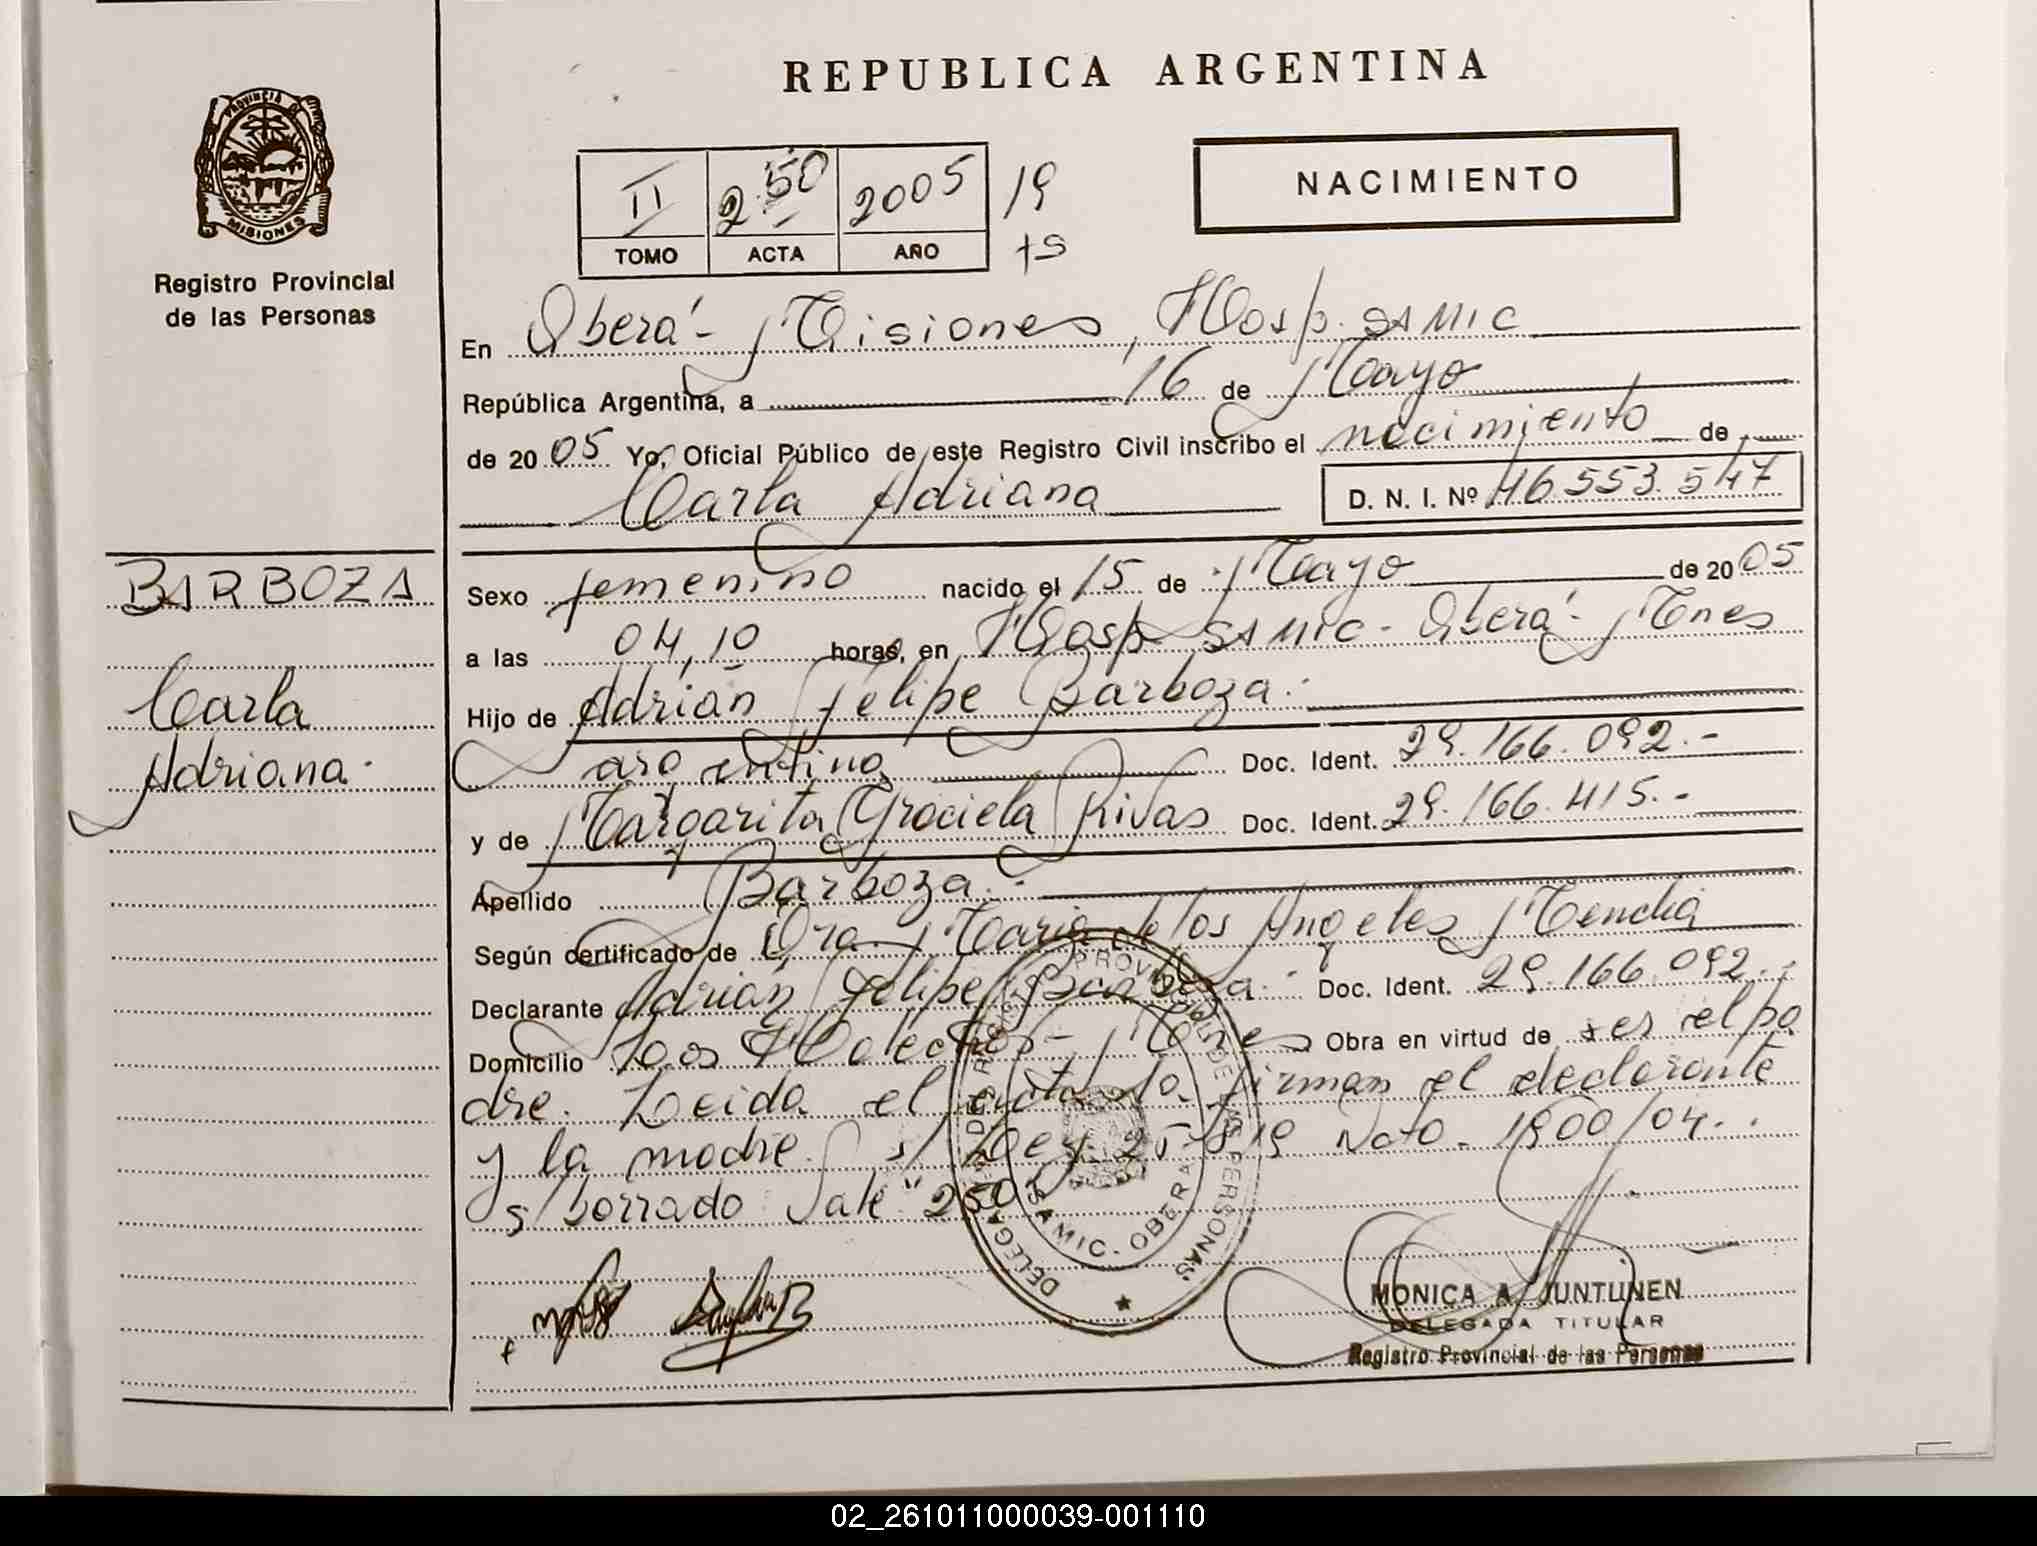 REPUBLICA ARGENTINA
PROVINCIA DE
MISIONES
Registro Provincial
de las Personas
II 250 2005 19
TOMO ACTA AÑO ts
NACIMIENTO
En Oberá - Misiones, Hosp. SAMIC
República Argentina, a 16 de Mayo
de 20 05 Yo, Oficial Público de este Registro Civil inscribo el nacimiento de
Carla Adriana D. N. I. Nº 46.553.547
BARBOZA
Carla
Adriana.
Sexo femenino nacido el 15 de Mayo de 20 05
a las 04,10 horas, en Hosp SAMIC - Oberá - Mnes
Hijo de Adrián Felipe Barboza.-
argentino Doc. Ident. 29.166.092.-
y de Margarita Graciela Rivas Doc. Ident. 29.166.415.-
Apellido Barboza.-
Según certificado de Dra. María de los Angeles
Declarante Adrián Felipe Barboza.- Doc. Ident. 29.166.092.-
Domicilio Los Helechos - Mnes Obra en virtud de ser el pa
dre. Leida el acta la firman el declarante
y la madre. s/ Ley 25.819 Nota - 1900/04..
s/ borrado Vale "250"
DELEGACION REGISTRO PROVINCIAL DE LAS PERSONAS
SAMIC - OBERA
MONICA A. JUNTUNEN
DELEGADA TITULAR
Registro Provincial de las Personas
02_261011000039-001110